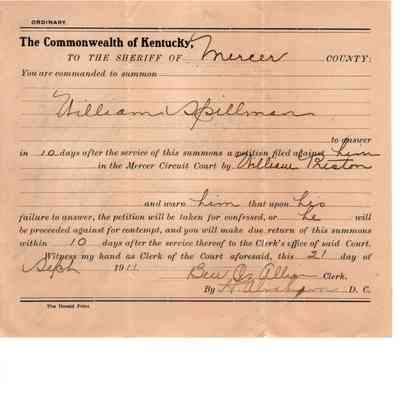 ORDINARY.
The Commonwealth of Kentucky,
TO THE SHERIFF OF Mercer COUNTY:
You are commanded to summon
William Spillman
to answer
in 10 days after the service of this summons a petition filed against him
in the Mercer Circuit Court by William Preston
and warn him that upon his
failure to answer, the petition will be taken for confessed, or he will
be proceeded against for contempt, and you will make due return of this summons
within 10 days after the service thereof to the Clerk's office of said Court.
Witness my hand as Clerk of the Court aforesaid, this 21 day of
Sept 1911 Ben Allin Clerk.
By D. C.
The Herald Print